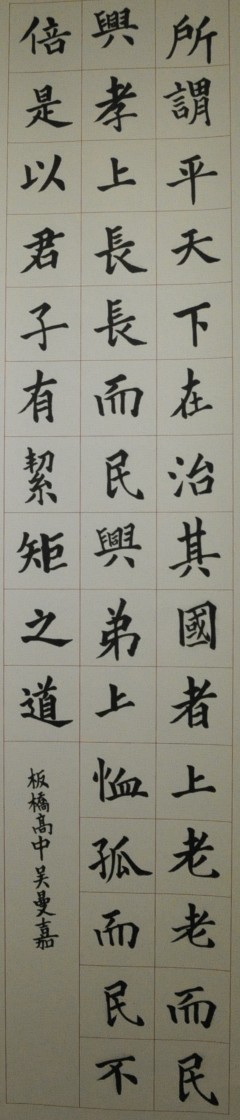 所謂平天下在治其國者上老老而民
興孝上長長而民興弟上恤孤而民不
倍是以君子有絜矩之道
板橋高中吳曼嘉